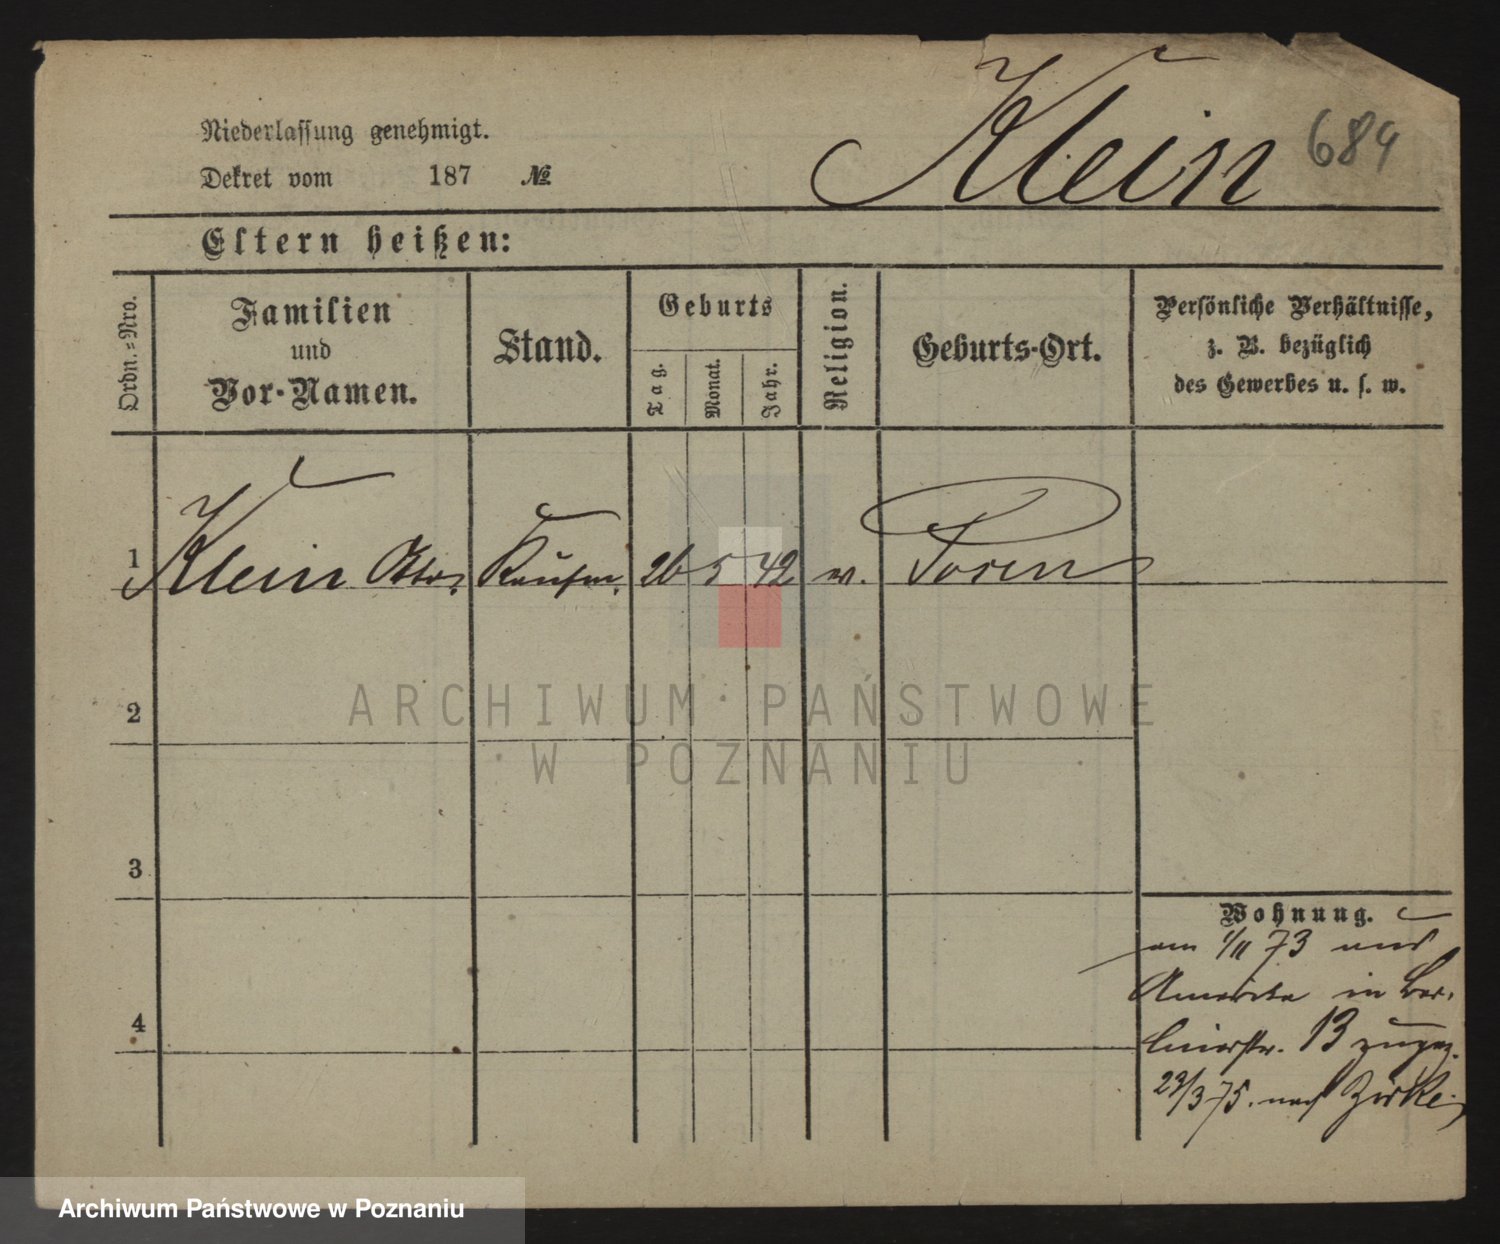 Klein 684
Niederlassung genehmigt.
Dekret vom 187 №
Eltern heißen:
Ordn.-Nro.
Familien
und
Vor-Namen.
Stand.
Geburts
Tag.
Monat.
Jahr.
Religion.
Geburts-Ort.
Persönliche Verhältnisse,
z. B. bezüglich
des Gewerbes u. s. w.
1 Klein Kaufm. 26 5 42 Posen
2
3
4
Wohnung.
am 1/11 73 aus
Amerika in Ber-
linerstr. 13 zugez.
23/3 75. nach Zirke
ARCHIWUM PAŃSTWOWE
W POZNANIU
Archiwum Państwowe w Poznaniu